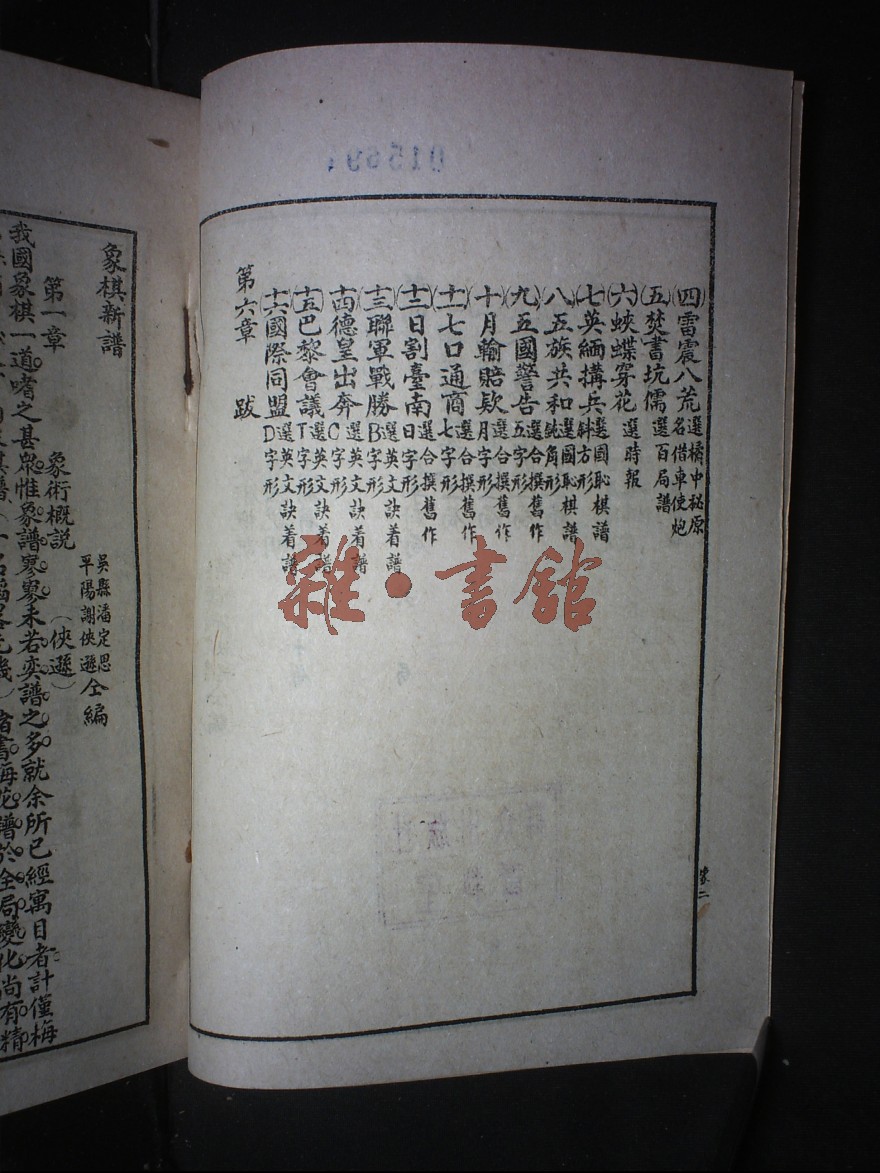 015694
(四)雷震八荒 選橘中秘原名借車使炮
(五)焚書坑儒 選百局譜
(六)蛺蝶穿花 選時報
(七)英緬搆兵 選國恥棋譜斜方形
(八)五族共和 選國恥棋譜鈍角形
(九)五國警告 選合撰舊作五字形
(十)月輸賠欵 選合撰舊作月字形
(十一)七口通商 選合撰舊作七字形
(十二)日割臺南 選合撰舊作日字形
(十三)聯軍戰勝 選英文訣着譜B字形
(十四)德皇出奔 選英文訣着譜C字形
(十五)巴黎會議 選英文訣着譜T字形
(十六)國際同盟 選英文訣着譜D字形
第六章 跋
象二
雜·書館
象棋新譜
吳縣潘定思
平陽謝俠遜 仝編
第一章 象術概説 (俠遜)
我國象棋一道嗜之甚衆惟象譜寥寥未若奕譜之多就余所已經寓目者計僅梅